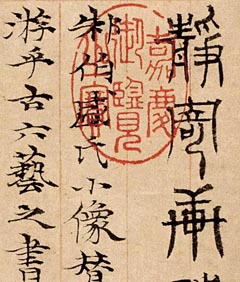 靜
朱伯盛氏小像
游乎古六藝之書
嘉慶御覽之寶